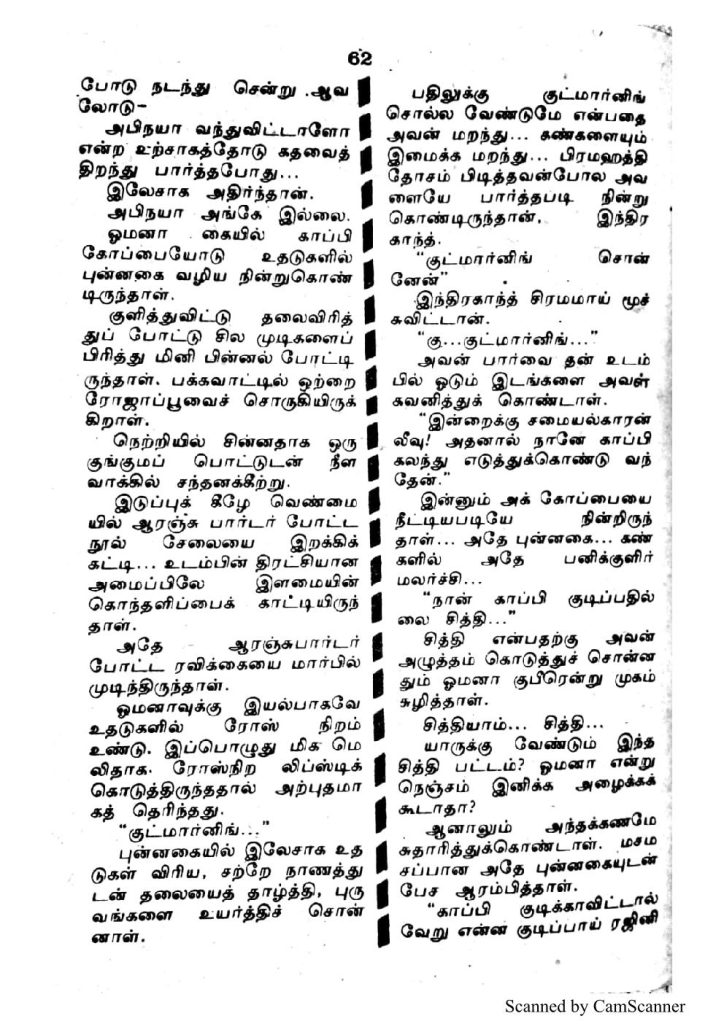 62
போடு நடந்து சென்று .ஆவ
லோடு–
அபிநயா வந்துவிட்டாளோ
என்ற உற்சாகத்தோடு கதவைத்
திறந்து பார்த்தபோது...
இலேசாக அதிர்ந்தான்.
அபிநயா அங்கே இல்லை.
ஓமனா கையில் காப்பி
கோப்பையோடு உதடுகளில்
புன்னகை வழிய நின்றுகொண்
டிருந்தாள்.
குளித்துவிட்டு தலைவிரித்
துப் போட்டு சில முடிகளைப்
பிரித்து மினி பின்னல் போட்டி
ருந்தாள். பக்கவாட்டில் ஒற்றை
ரோஜாப்பூவைச் சொருகியிருக்
கிறாள்.
நெற்றியில் சின்னதாக ஒரு
குங்குமப் பொட்டுடன் நீள
வாக்கில் சந்தனக்கீற்று.
இடுப்புக் கீழே வெண்மை
யில் ஆரஞ்சு பார்டர் போட்ட
நூல் சேலையை இறக்கிக்
கட்டி... உடம்பின் திரட்சியான
அமைப்பிலே இளமையின்
கொந்தளிப்பைக் காட்டியிருந்
தாள்.
அதே ஆரஞ்சுபார்டர்
போட்ட ரவிக்கையை மார்பில்
முடிந்திருந்தாள்.
ஓமனாவுக்கு இயல்பாகவே
உதடுகளில் ரோஸ் நிறம்
உண்டு. இப்பொழுது மிக மெ
லிதாக. ரோஸ்நிற லிப்ஸ்டிக்
கொடுத்திருந்ததால் அற்புதமா
கத் தெரிந்தது.
"குட்மார்னிங்..."
புன்னகையில் இலேசாக உத
டுகள் விரிய, சற்றே நாணத்து
டன் தலையைத் தாழ்த்தி, புரு
வங்களை உயர்த்திச் சொன்
னாள்.
பதிலுக்கு குட்மார்னிங்
சொல்ல வேண்டுமே என்பதை
அவன் மறந்து... கண்களையும்
இமைக்க மறந்து... பிரமஹத்தி
தோசம் பிடித்தவன்போல அவ
ளையே பார்த்தபடி நின்று
கொண்டிருந்தான். இந்திர
காந்த்.
"குட்மார்னிங் சொன்
னேன்"
இந்திரகாந்த் சிரமமாய் மூச்
சுவிட்டான்.
"கு...குட்மார்னிங்..."
அவன் பார்வை தன் உடம்
பில் ஓடும் இடங்களை அவள்
கவனித்துக் கொண்டாள்.
"இன்றைக்கு சமையல்காரன்
லீவு! அதனால் நானே காப்பி
கலந்து எடுத்துக்கொண்டு வந்
தேன்."
இன்னும் அக் கோப்பையை
நீட்டியபடியே நின்றிருந்
தாள்... அதே புன்னகை... கண்
களில் அதே பனிக்குளிர்
மலர்ச்சி...
"நான் காப்பி குடிப்பதில்
லை சித்தி..."
சித்தி என்பதற்கு அவன்
அழுத்தம் கொடுத்துச் சொன்ன
தும் ஓமனா குபீரென்று முகம்
சுழித்தாள்.
சித்தியாம்... சித்தி...
யாருக்கு வேண்டும் இந்த
சித்தி பட்டம்? ஓமனா என்று
நெஞ்சம் இனிக்க அழைக்கக்
கூடாதா?
ஆனாலும் அந்தக்கணமே
சுதாரித்துக்கொண்டாள். மசம
சப்பான அதே புன்னகையுடன்
பேச ஆரம்பித்தாள்.
"காப்பி குடிக்காவிட்டால்
வேறு என்ன குடிப்பாய் ரஜினி
Scanned by CamScanner